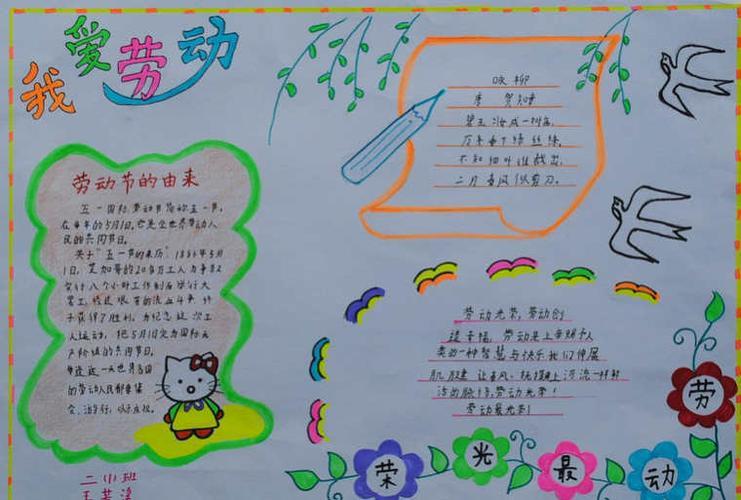 我爱劳动
劳动节的由来
五一国际劳动节简称五一节,
在每年的5月1日,它是全世界劳动人
民的共同节日。
关于“五一节的来历”:1886年5月
1日,芝加哥的20多万工人为争取
实行八个小时工作制而举行大
罢工,经过艰苦的流血斗争,终
于获得了胜利。为纪念这次工
人运动,把5月1日定为国际无
产阶级的共同节日。
每逢这一天世界各国
的劳动人民都要集
会、游行,以示庆祝。
二小班
咏柳
唐 贺知章
碧玉妆成一树高,
万条垂下绿丝绦。
不知细叶谁裁出,
二月春风似剪刀。
劳动光荣,劳动创
造幸福,劳动是上帝赐予人
类的一种智慧与快乐我们伸展
肌腱 让春风
活的脉 劳动光荣!
劳动最光荣!
劳
动
最
光
荣